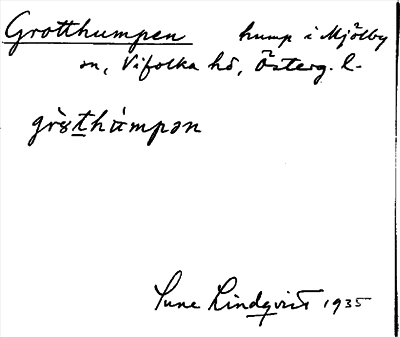 Grotthumpen hump i Mjölby
sn, Vifolka hd, Österg. l.
grò̤t̲hṳ́mpən
Sune Lindqvist 1935